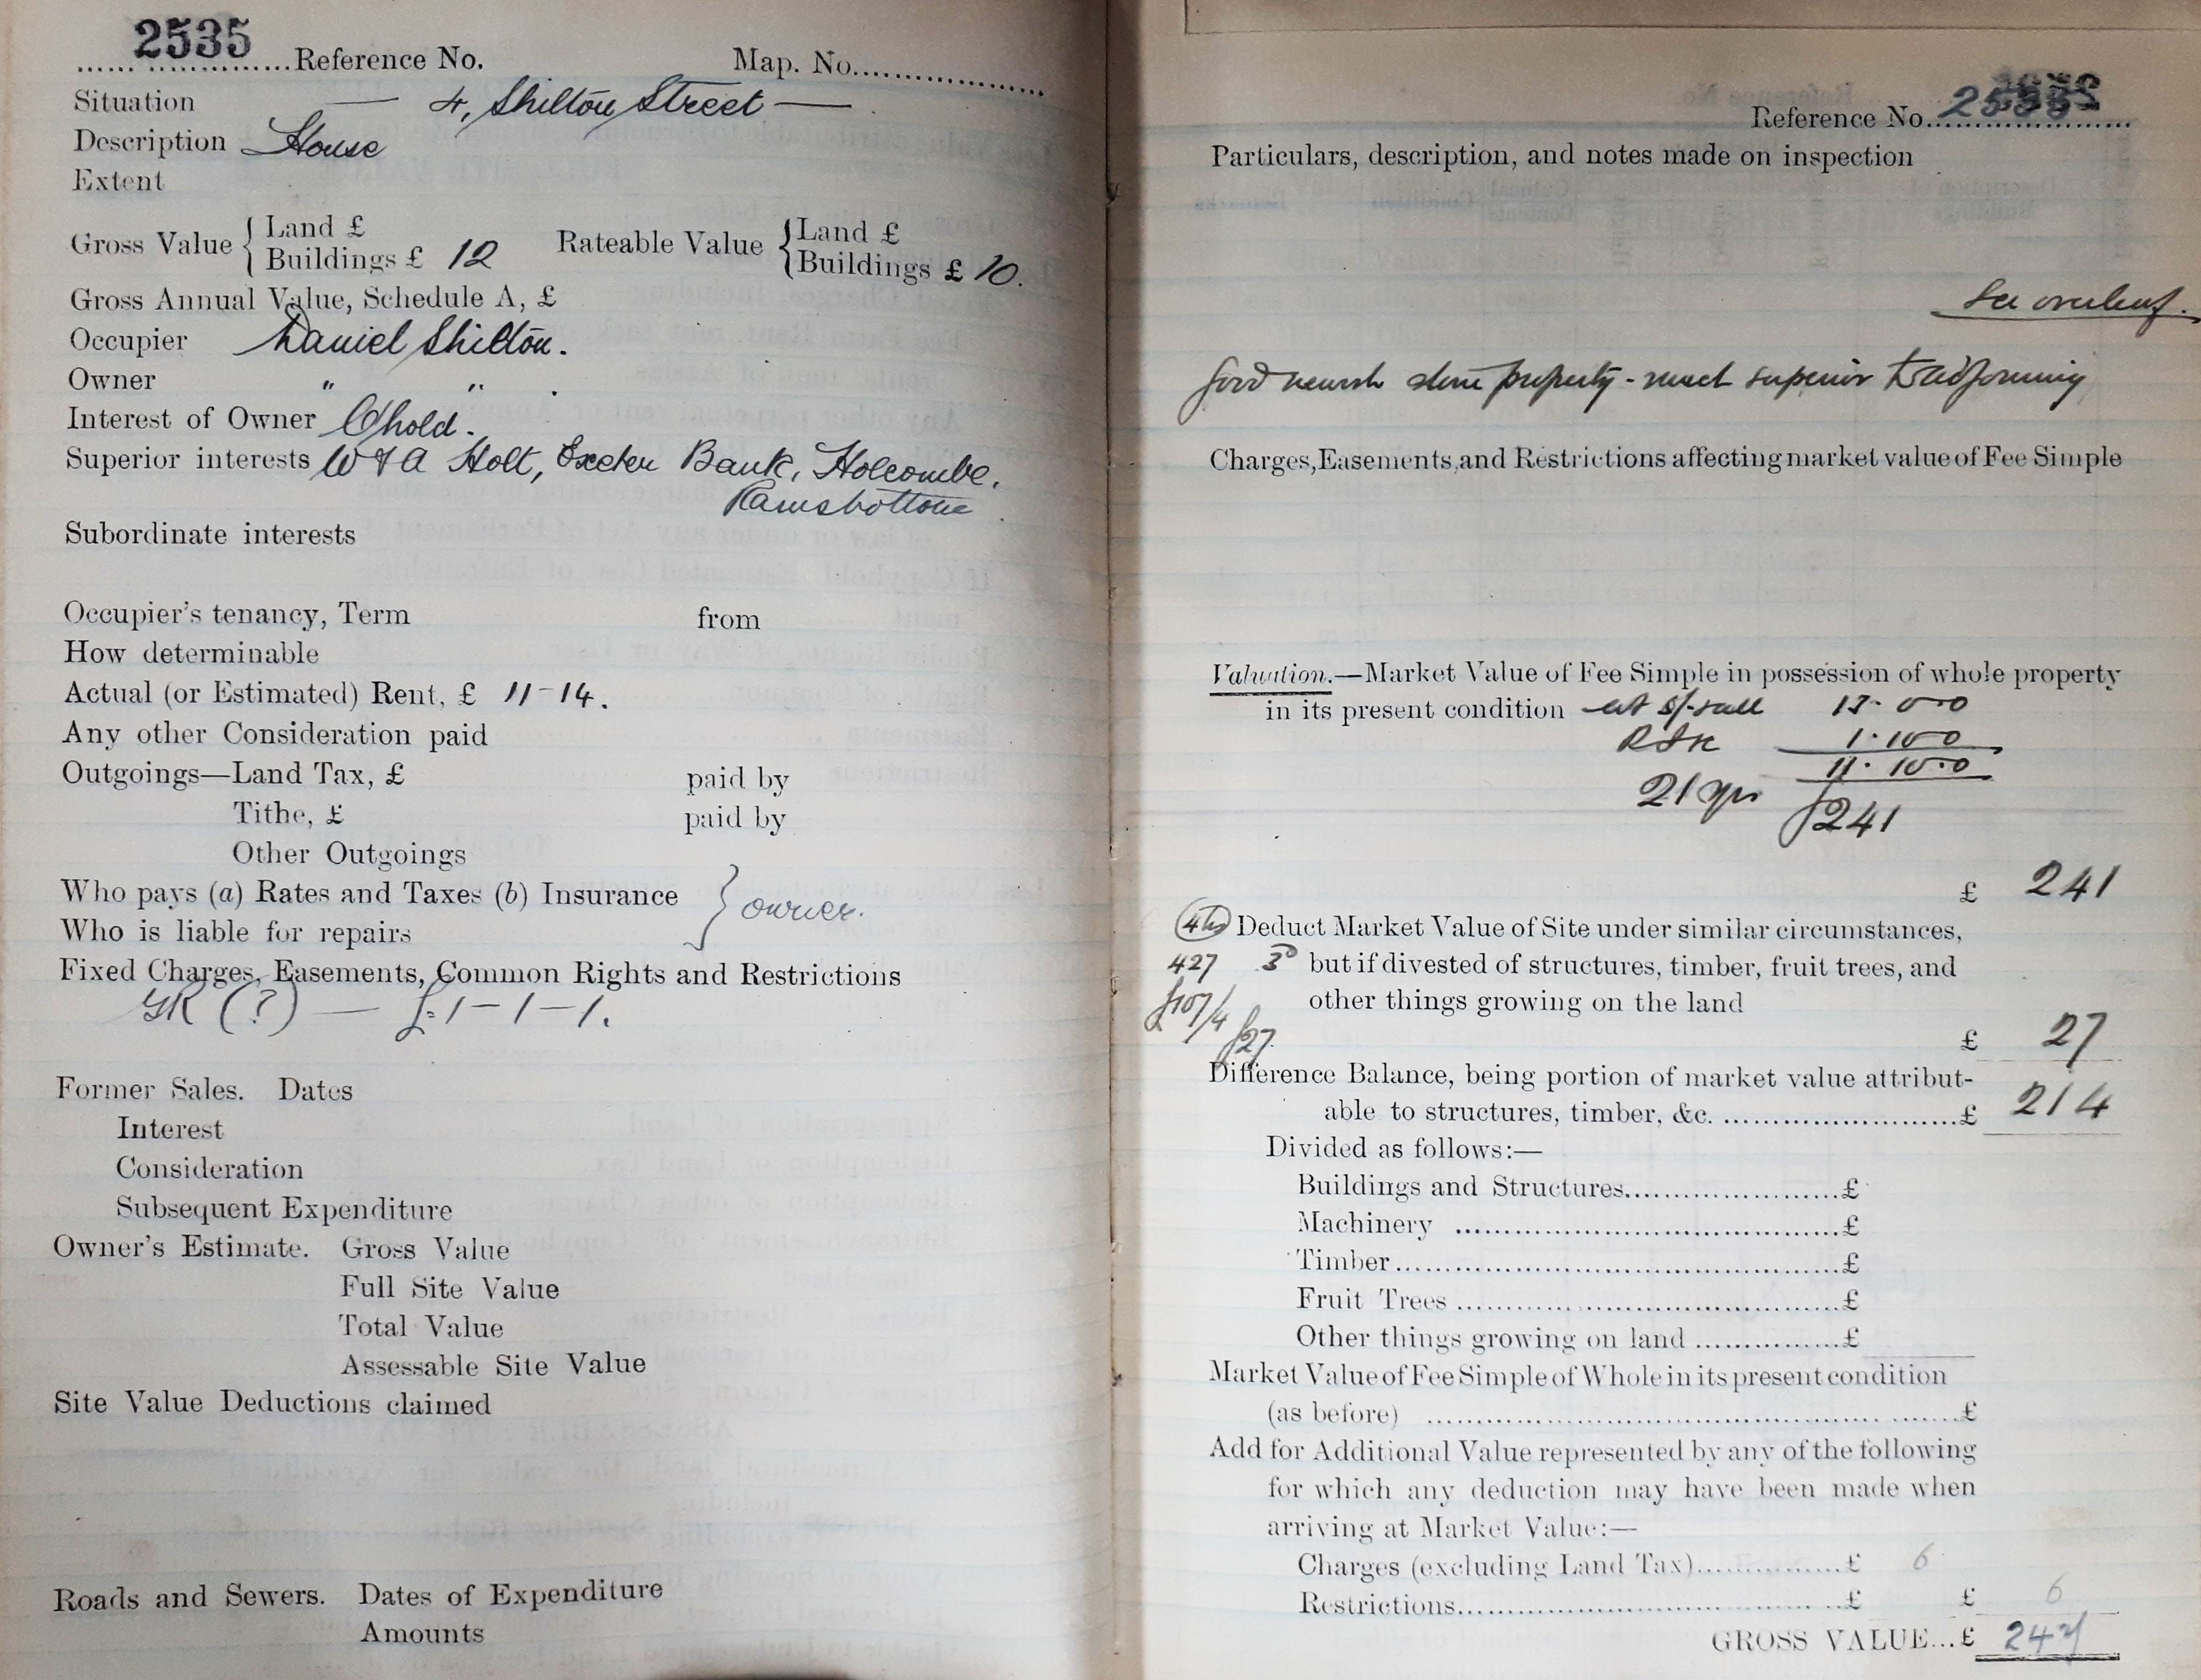 2535 Reference No. Map. No.
Situation — 4, Shilton Street —
Description House
Extent
Gross Value { Land £
Buildings £ 12
Rateable Value { Land £
Buildings £ 10.
Gross Annual Value, Schedule A, £
Occupier Daniel Shilton.
Owner " " .
Interest of Owner Chold.
Superior interests W & A Holt, Exeter Bank, Holcombe,
Ramsbottom
Subordinate interests
Occupier's tenancy, Term from
How determinable
Actual (or Estimated) Rent, £ 11-14.
Any other Consideration paid
Outgoings—Land Tax, £ paid by
Tithe, £ paid by
Other Outgoings
Who pays (a) Rates and Taxes (b) Insurance } owner.
Who is liable for repairs
Fixed Charges, Easements, Common Rights and Restrictions
GR (?) — £1-1-1.
Former Sales. Dates
Interest
Consideration
Subsequent Expenditure
Owner's Estimate. Gross Value
Full Site Value
Total Value
Assessable Site Value
Site Value Deductions claimed
Roads and Sewers. Dates of Expenditure
Amounts
Reference No. 2535
Particulars, description, and notes made on inspection
See overleaf.
Good stone property - much superior
Charges, Easements, and Restrictions affecting market value of Fee Simple
Valuation.—Market Value of Fee Simple in possession of whole property
in its present condition at 5/-
1.10.0
11.10.0
21 yrs £241
£ 241
Deduct Market Value of Site under similar circumstances,
427 3d but if divested of structures, timber, fruit trees, and
£107/4 other things growing on the land
£27
£ 27
Difference Balance, being portion of market value attribut-
able to structures, timber, &c. £ 214
Divided as follows:—
Buildings and Structures £
Machinery £
Timber £
Fruit Trees £
Other things growing on land £
Market Value of Fee Simple of Whole in its present condition
(as before) £
Add for Additional Value represented by any of the following
for which any deduction may have been made when
arriving at Market Value:—
Charges (excluding Land Tax) £ 6
Restrictions £ £ 6
GROSS VALUE...£ 247